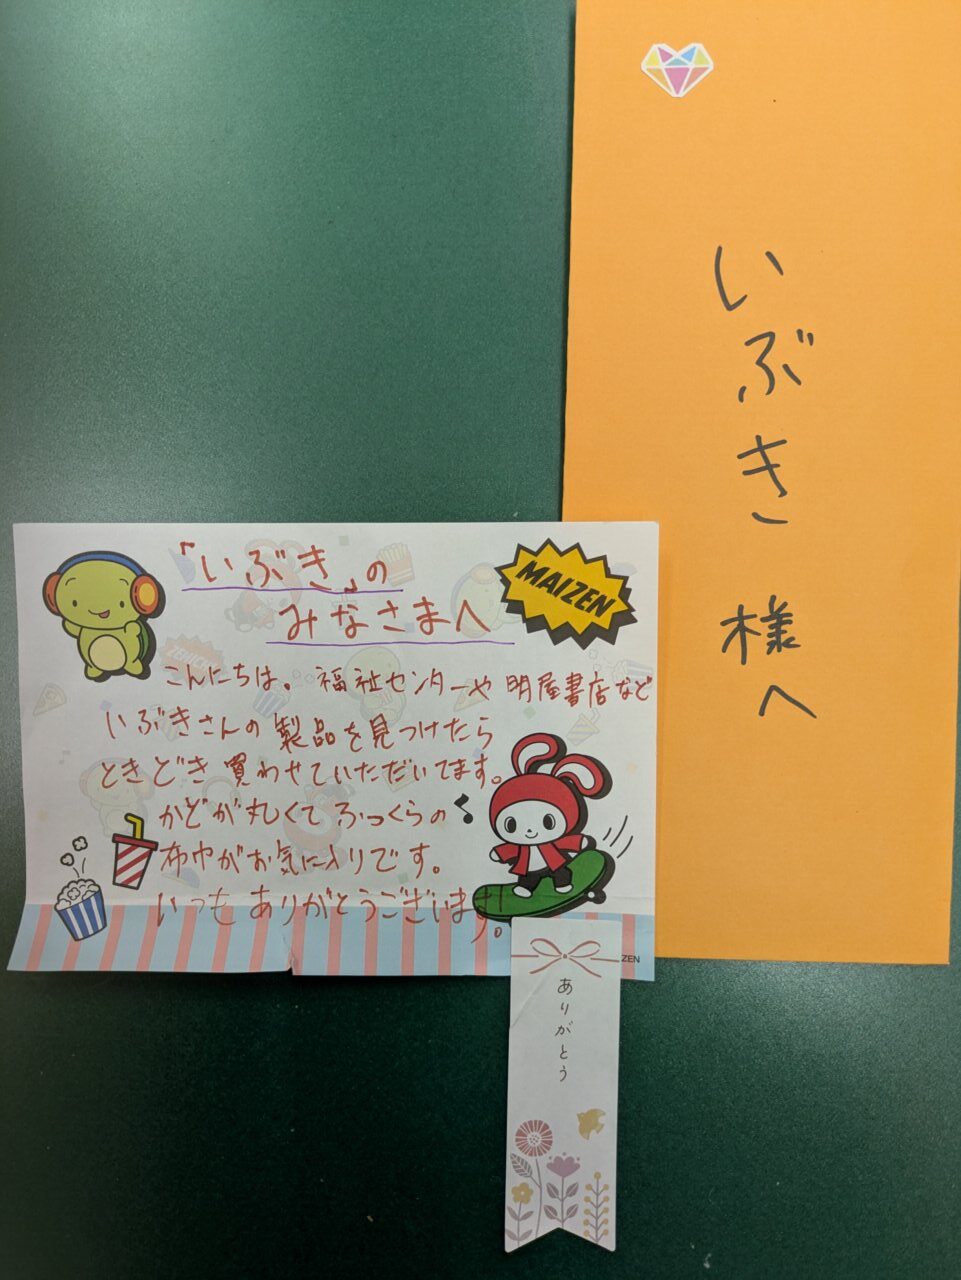 いぶき様へ
「いぶき」の
みなさまへ
MAIZEN
こんにちは。福祉センターや明屋書店など
いぶきさんの製品を見つけたら
ときどき買わせていただいてます。
かどが丸くてふっくらの♪
布巾がお気に入りです。
いつもありがとうございます!。
ZEN
ありがとう